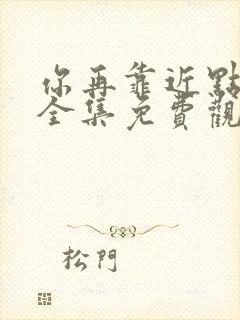 你再靠近點
全集免費觀
松門